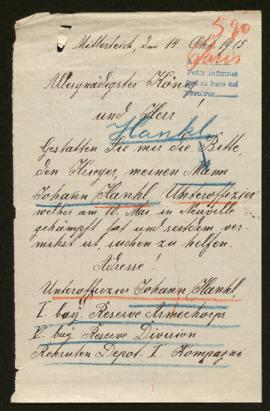 590
Paris
Mitterteich, den 14. Okt. 1915
Pedir informes
que se haga sa
devolver
Allergnädigster König
und Herr!
Hankl
Gestatten Sie mir die Bitte,
den Krieger, meinen Mann
Johann Hankl Unteroffizier
welcher am 10. Mai in Neuville
gekämpft hat und seitdem ver-
mißt ist, suchen zu helfen.
Adresse!
Unteroffizier Johann Hankl
I. bay. Reserve Armeekorps
V. bay. Reserve Division
Rekruten Depot. I. Kompagnie